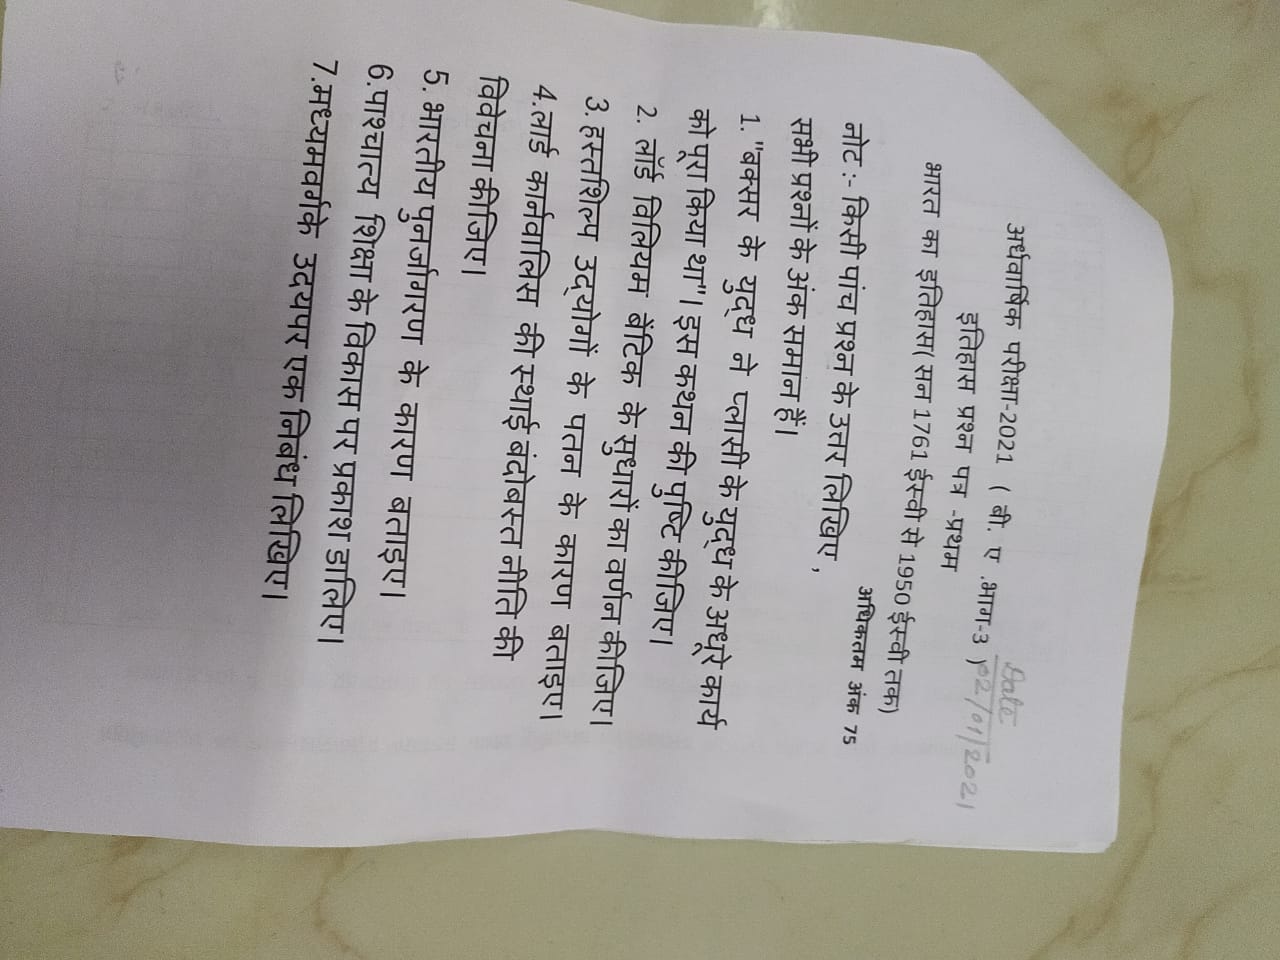 अर्धवार्षिक परीक्षा-2021 ( बी. ए .भाग-3 )
Date
02/01/2021
इतिहास प्रश्न पत्र -प्रथम
भारत का इतिहास( सन 1761 ईस्वी से 1950 ईस्वी तक)
अधिकतम अंक 75
नोट :- किसी पांच प्रश्न के उत्तर लिखिए ,
सभी प्रश्नों के अंक समान हैं।
1. "बक्सर के युद्ध ने प्लासी के युद्ध के अधूरे कार्य
को पूरा किया था"। इस कथन की पुष्टि कीजिए।
2. लॉर्ड विलियम बेंटिक के सुधारों का वर्णन कीजिए।
3.हस्तशिल्प उद्योगों के पतन के कारण बताइए।
4.लार्ड कार्नवालिस की स्थाई बंदोबस्त नीति की
विवेचना कीजिए।
5. भारतीय पुनर्जागरण के कारण बताइए।
6.पाश्चात्य शिक्षा के विकास पर प्रकाश डालिए।
7.मध्यमवर्गके उदयपर एक निबंध लिखिए।